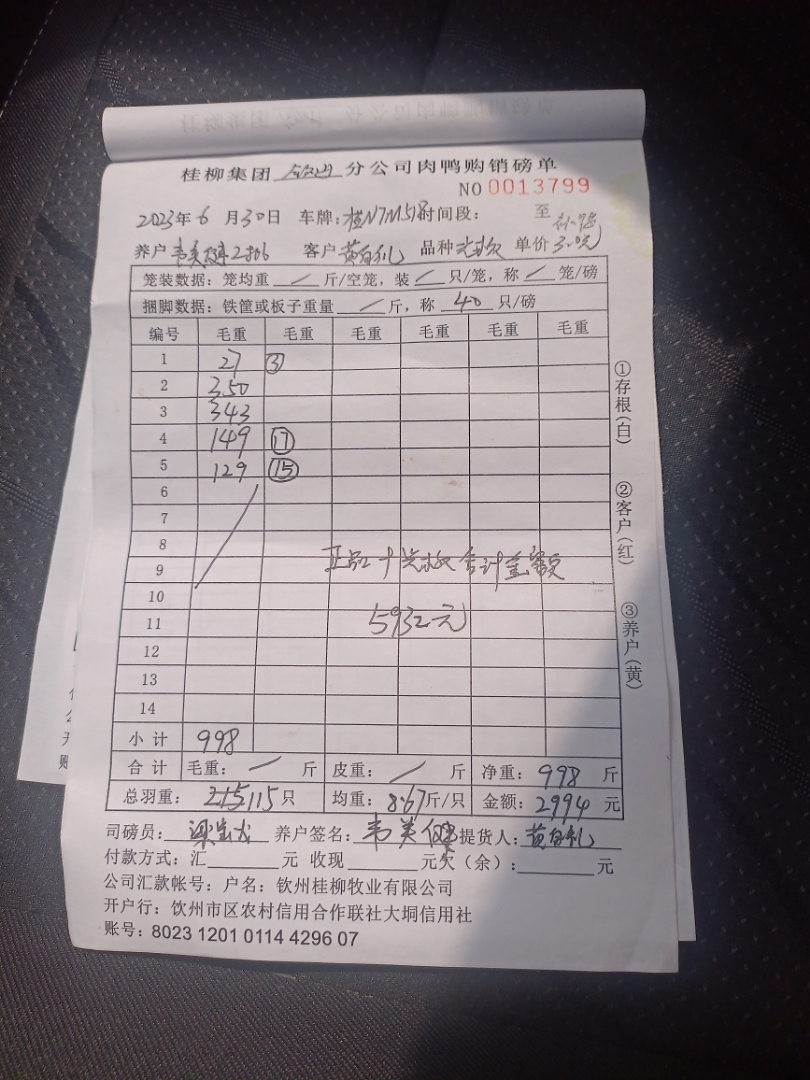 桂柳集团 分公司肉鸭购销磅单
NO 0013799
2023年6月30日 车牌：桂N7M518 时间段： 至
养户 韦美健 客户 黄自礼 品种 单价 3.0元
笼装数据：笼均重 / 斤/空笼，装 / 只/笼，称 / 笼/磅
捆脚数据：铁筐或板子重量 / 斤，称 40 只/磅
编号 毛重 毛重 毛重 毛重 毛重 毛重
1 27 ③
2 350
3 343
4 149 ⑰
5 129 ⑮
6
7
8
9 正品 + 合计金额
10
11 5932元
12
13
14
小计 998
合计 毛重： / 斤 皮重： / 斤 净重：998 斤
总羽重： 115只 均重：8.67斤/只 金额：2994 元
司磅员： 养户签名：韦美健 提货人：黄自礼
付款方式：汇 元 收现 元欠（余）： 元
公司汇款帐号：户名：钦州桂柳牧业有限公司
开户行：钦州市区农村信用合作联社大垌信用社
账号：8023 1201 0114 4296 07
①存根（白）
②客户（红）
③养户（黄）